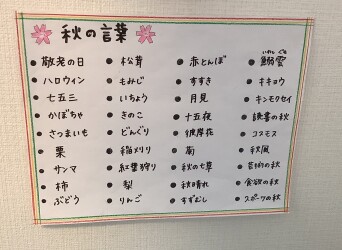 秋の言葉
敬老の日
ハロウィン
七五三
かぼちゃ
さつまいも
栗
サンマ
柿
ぶどう
松茸
もみじ
いちょう
きのこ
どんぐり
稲刈り
紅葉狩り
梨
りんご
赤とんぼ
すすき
月見
十五夜
彼岸花
菊
秋の七草
秋晴れ
すずむし
いわし ぐも
鰯雲
キキョウ
キンモクセイ
読書の秋
コスモス
秋風
芸術の秋
食欲の秋
スポーツの秋